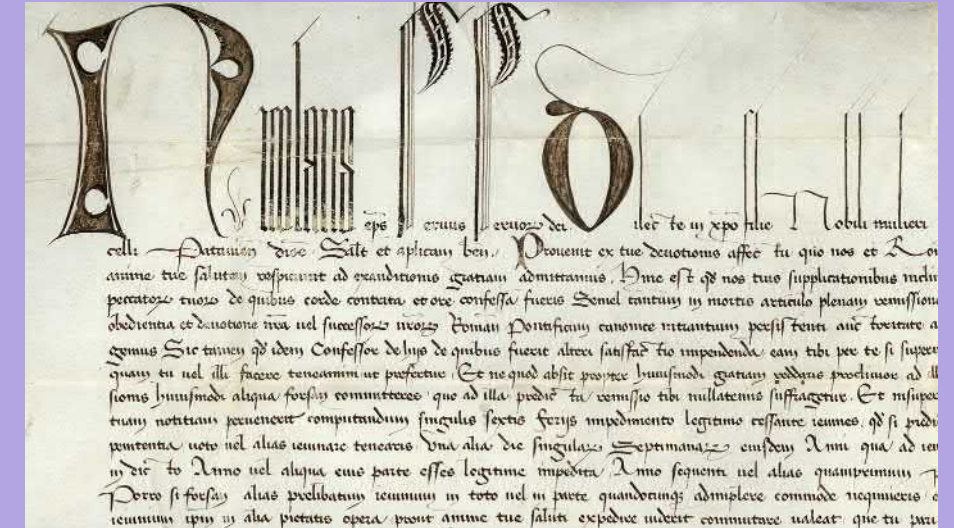 Nicolaus eps Seruus Seruor dei Dilec te in xpo filie Nobili mulieri
celli Patauien dioc Salt et aplicam ben. Prouenit ex tue deuotionis affec tu quo nos et Ro
anime tue salutem respiciunt ad exauditionis gratiam admittamus. Hinc est qd nos tuis supplicationibus inclin
peccator tuor de quibus corde contrita et ore confessa fueris Semel tantum in mortis articulo plenam remission
obedientia et deuotione nra uel successor nror Roman Pontificum canonice intrantium persis tenti auc toritate a
gemus Sic tamen qd idem Confessor de hijs de quibus fuerit alteri satisfac tio impendenda eam tibi per te si super
quam tu uel illi facere teneamini ut prefertur. Et ne quod absit propter huiusmodi gratiam reddaris procliuior ad ill
sionis huiusmodi aliqua forsan committeres quo ad illa predic ta remissio tibi nullatenus suffragetur. Et insuper
tuam notitiam peruenerit computandum singulis sextis ferijs impedimento legitimo cessante ieiunes, qd si predi
penitentia uoto uel alias ieiunare tenearis Vna alia die singular Septimanar eiusdem Anni qua ad ieiu
in dic to Anno uel aliqua eius parte esses legitime impedita Anno sequenti uel alias quamprimum
Porro si forsan alias prelibatum ieiunium in toto uel in parte quandocunq adimplere commode nequiueris
ieiunium ipm in alia pietatis opera prout anime tue saluti expedire uiderit commutare ualeat que tu pari